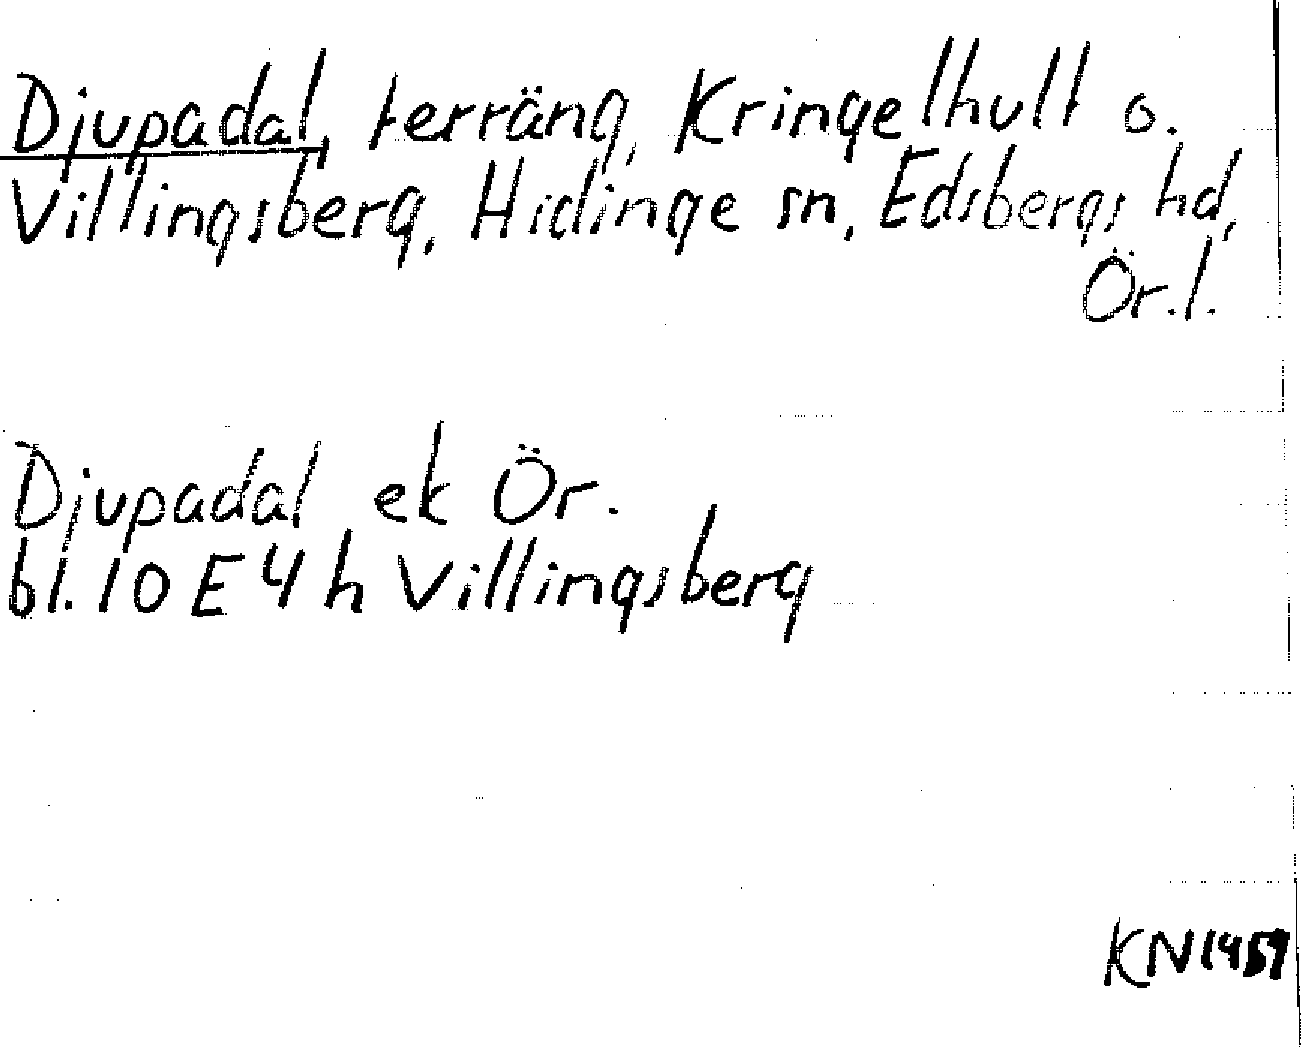 Djupadal, terräng, Kringelhult o.
Villingsberg, Hidinge sn, Edsbergs hd,
Ör.l.
Djupadal ek Ör.
bl. 10 E 4 h Villingsberg